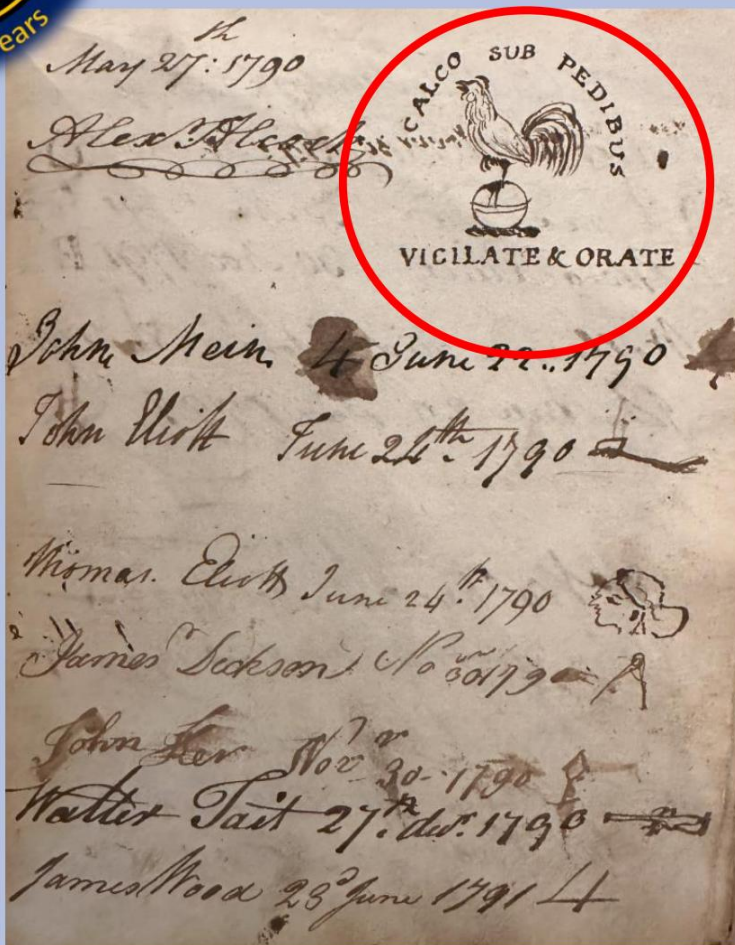 ears
May 27th: 1790
Alexr
CALCO SUB PEDIBUS
VIGILATE & ORATE
John Mein 4 June 22.. 1790
John Eliott June 24th. 1790
Thomas. Eliott June 24th. 1790
James Dickson Nov 30 1790
John Ker Novr 30- 1790
Walter Tait 27th. decr. 1790
James Wood 23d June 1791 4